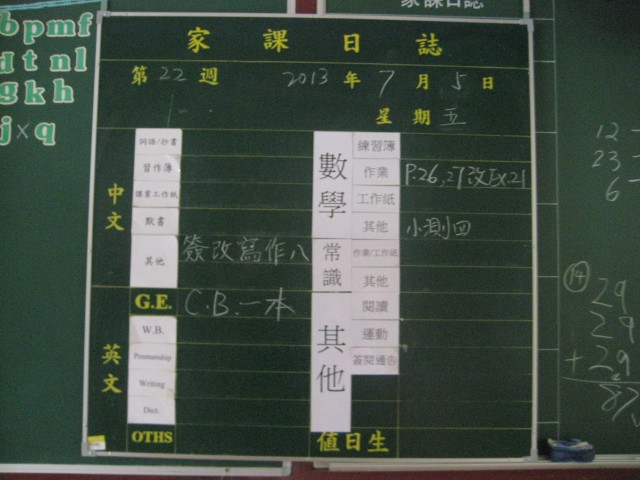 bpmf
dtnl
gkh
jxq
家課日誌
家課日誌
第22週 2013年7月5日
星期五
中文
詞語/抄書
習作簿
課業工作紙
默書
其他 簽改寫作八
G.E. C.B.一本
英文
W.B.
Penmanship
Writing
Dict.
OTHS
數學
練習簿
作業 P.26,27改Ex.21
工作紙
其他 小測四
常識
作業/工作紙
其他
其他
閱讀
運動
簽閱通告
值日生
12
23
6
14
29
29
+29
87